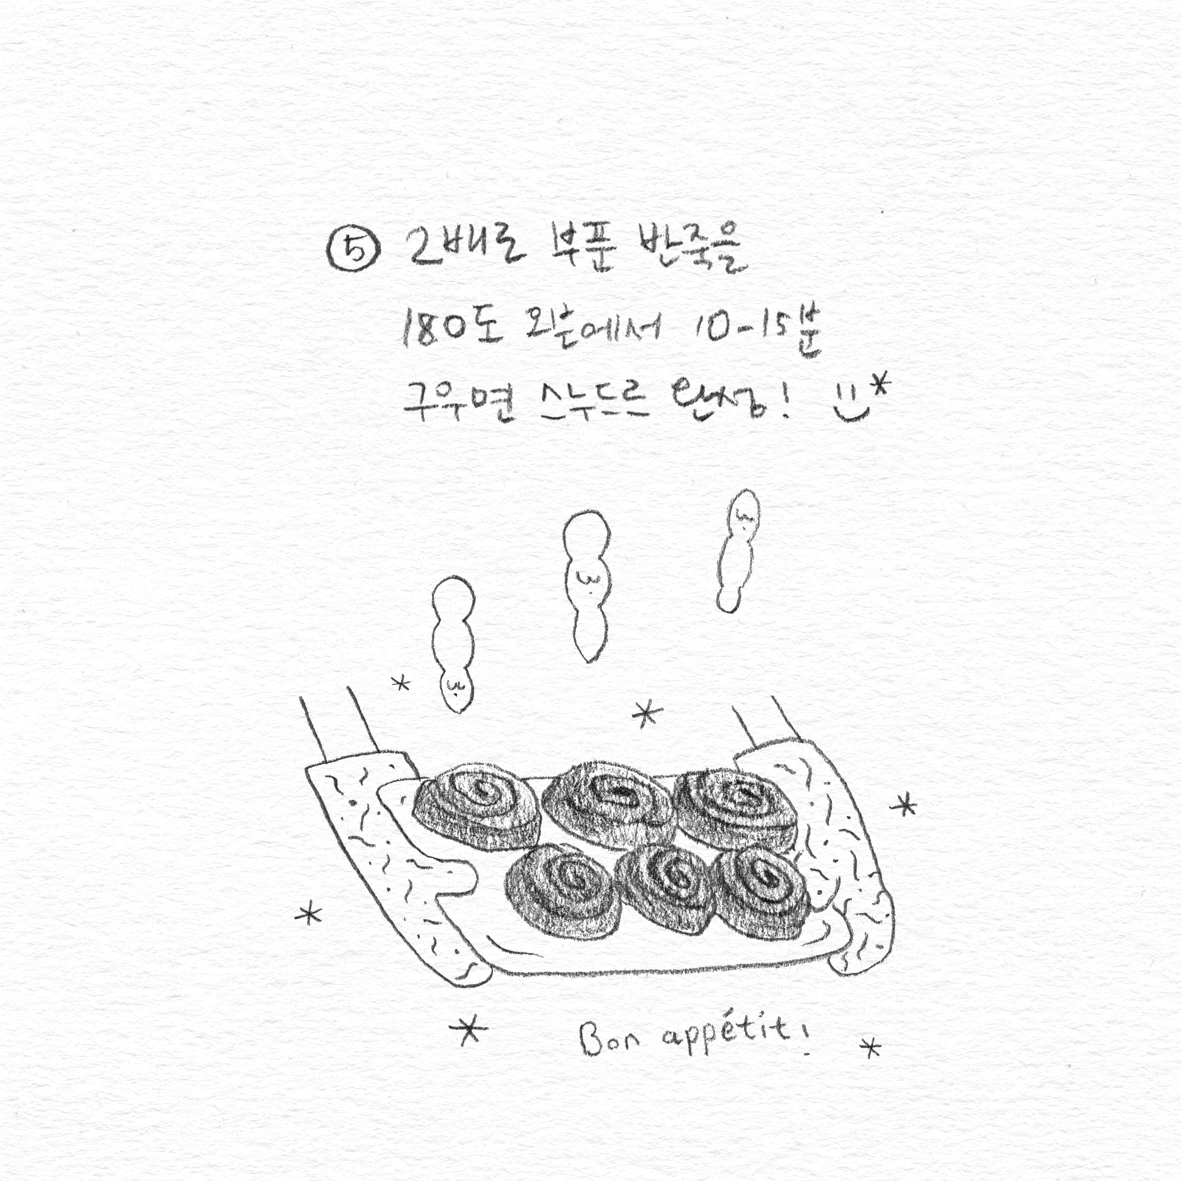 ⑤ 2배로 부푼 반죽을
180도 오븐에서 10-15분
구우면 스누드르 완성! :)*
Bon appétit!